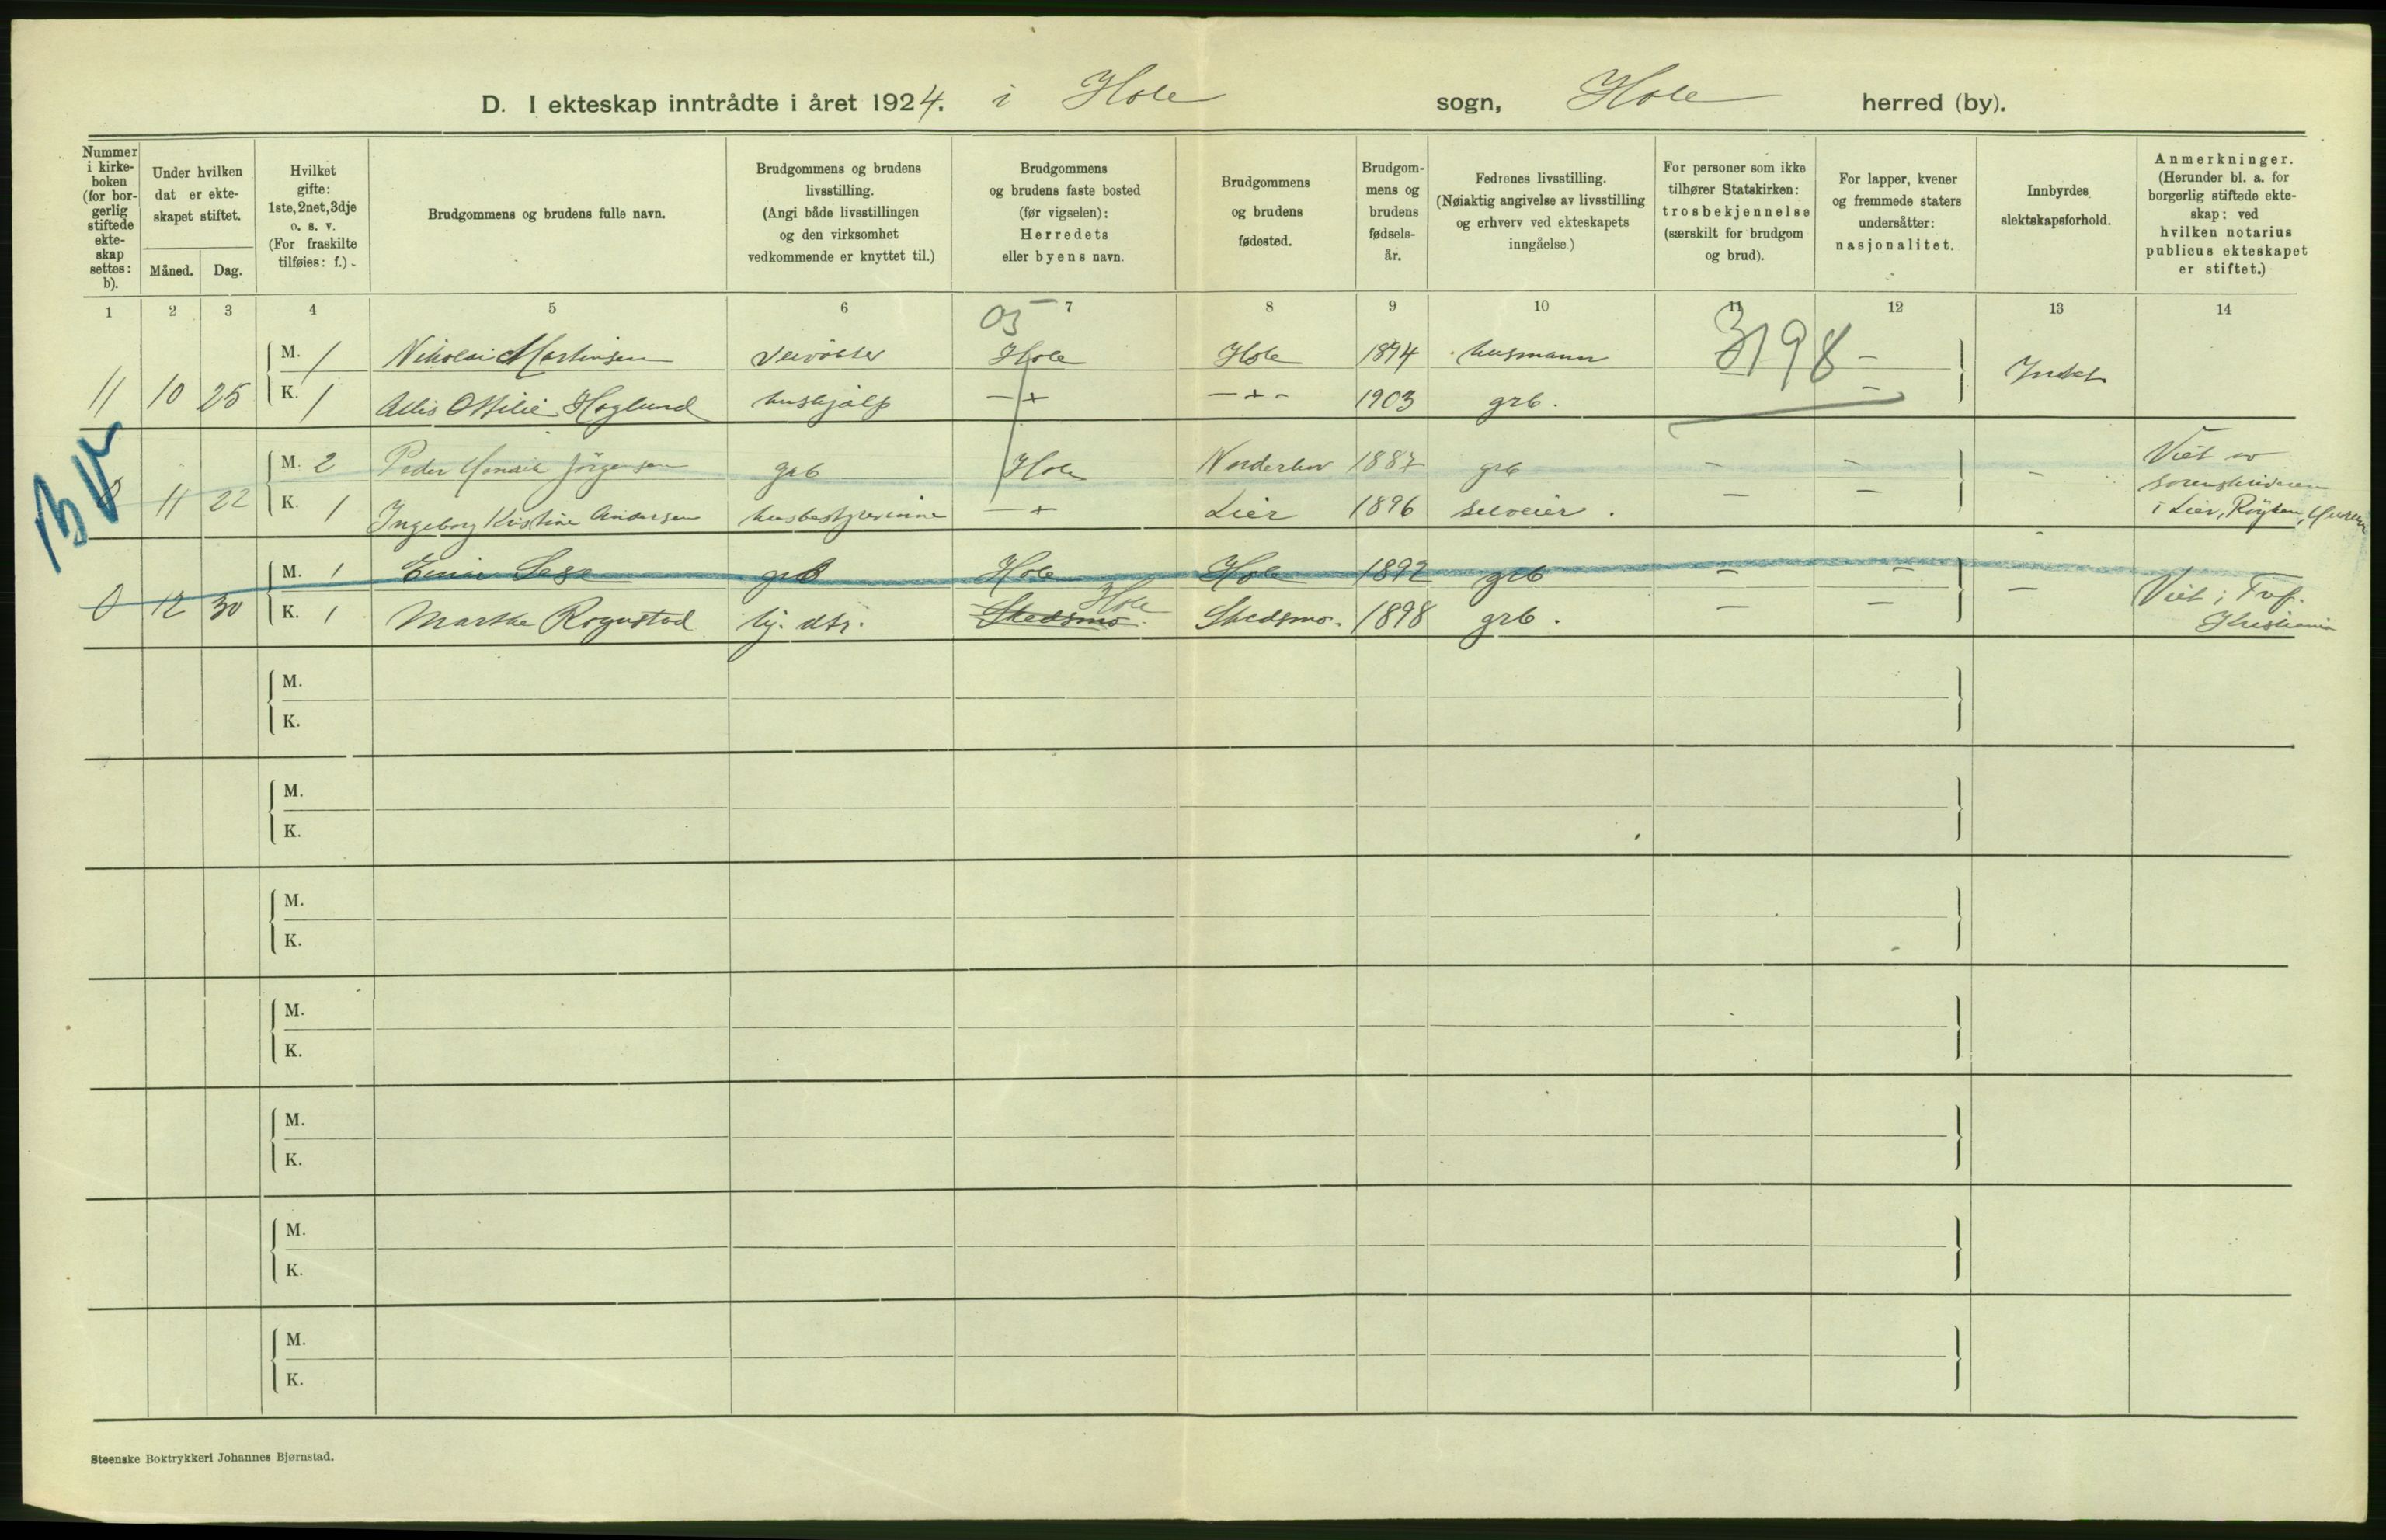 D. I ekteskap inntrådte i året 1924. i Hole sogn, Hole herred (by).
Nummer i kirke-boken (for bor-gerlig stiftede ekte-skap settes: b).
Under hvilken dat er ekte-skapet stiftet.
Måned. Dag.
Hvilket gifte: 1ste, 2net, 3dje o. s. v. (For fraskilte tilføies: f.).
Brudgommens og brudens fulle navn.
Brudgommens og brudens livsstilling. (Angi både livsstillingen og den virksomhet vedkommende er knyttet til.)
Brudgommens og brudens faste bosted (før vigselen): Herredets eller byens navn.
Brudgommens og brudens fødested.
Brudgom-mens og brudens fødsels-år.
Fedrenes livsstilling. (Nøiaktig angivelse av livsstilling og erhverv ved ekteskapets inngåelse.)
For personer som ikke tilhører Statskirken: trosbekjennelse (særskilt for brudgom og brud).
For lapper, kvener og fremmede staters undersåtter: nasjonalitet.
Innbyrdes slektskapsforhold.
Anmerkninger. (Herunder bl. a. for borgerlig stiftede ekte-skap: ved hvilken notarius publicus ekteskapet er stiftet.)
1 2 3 4 5 6 7 8 9 10 11 12 13 14
03
3198
M. 1 Nikolai Martinsen Hole Hole 1894 husmann -
11 10 25 K. 1 Allis Ottilie Høglund hushjælp -"- -"- 1903 grb. -
M. 2 Peder Henrik Jörgensen grb Hole Norderhov 1887 grb - - - Viet av
11 22 K. 1 Ingeborg Kristine Andersen husbestyrerinne -"- Lier 1896 selveier. - - sorenskriveren
i Lier, Röyken, Hurum
BV
M. 1 Einar Sego grb Hole Hole 1892 grb - - - Viet i Tref.
0 12 30 K. 1 Marthe Rogustad hj. dtr. Skedsmo. Hole Skedsmo. 1898 grb. - - Kristiania
M.
K.
M.
K.
M.
K.
M.
K.
M.
K.
M.
K.
M.
K.
Steenske Boktrykkeri Johannes Bjørnstad.